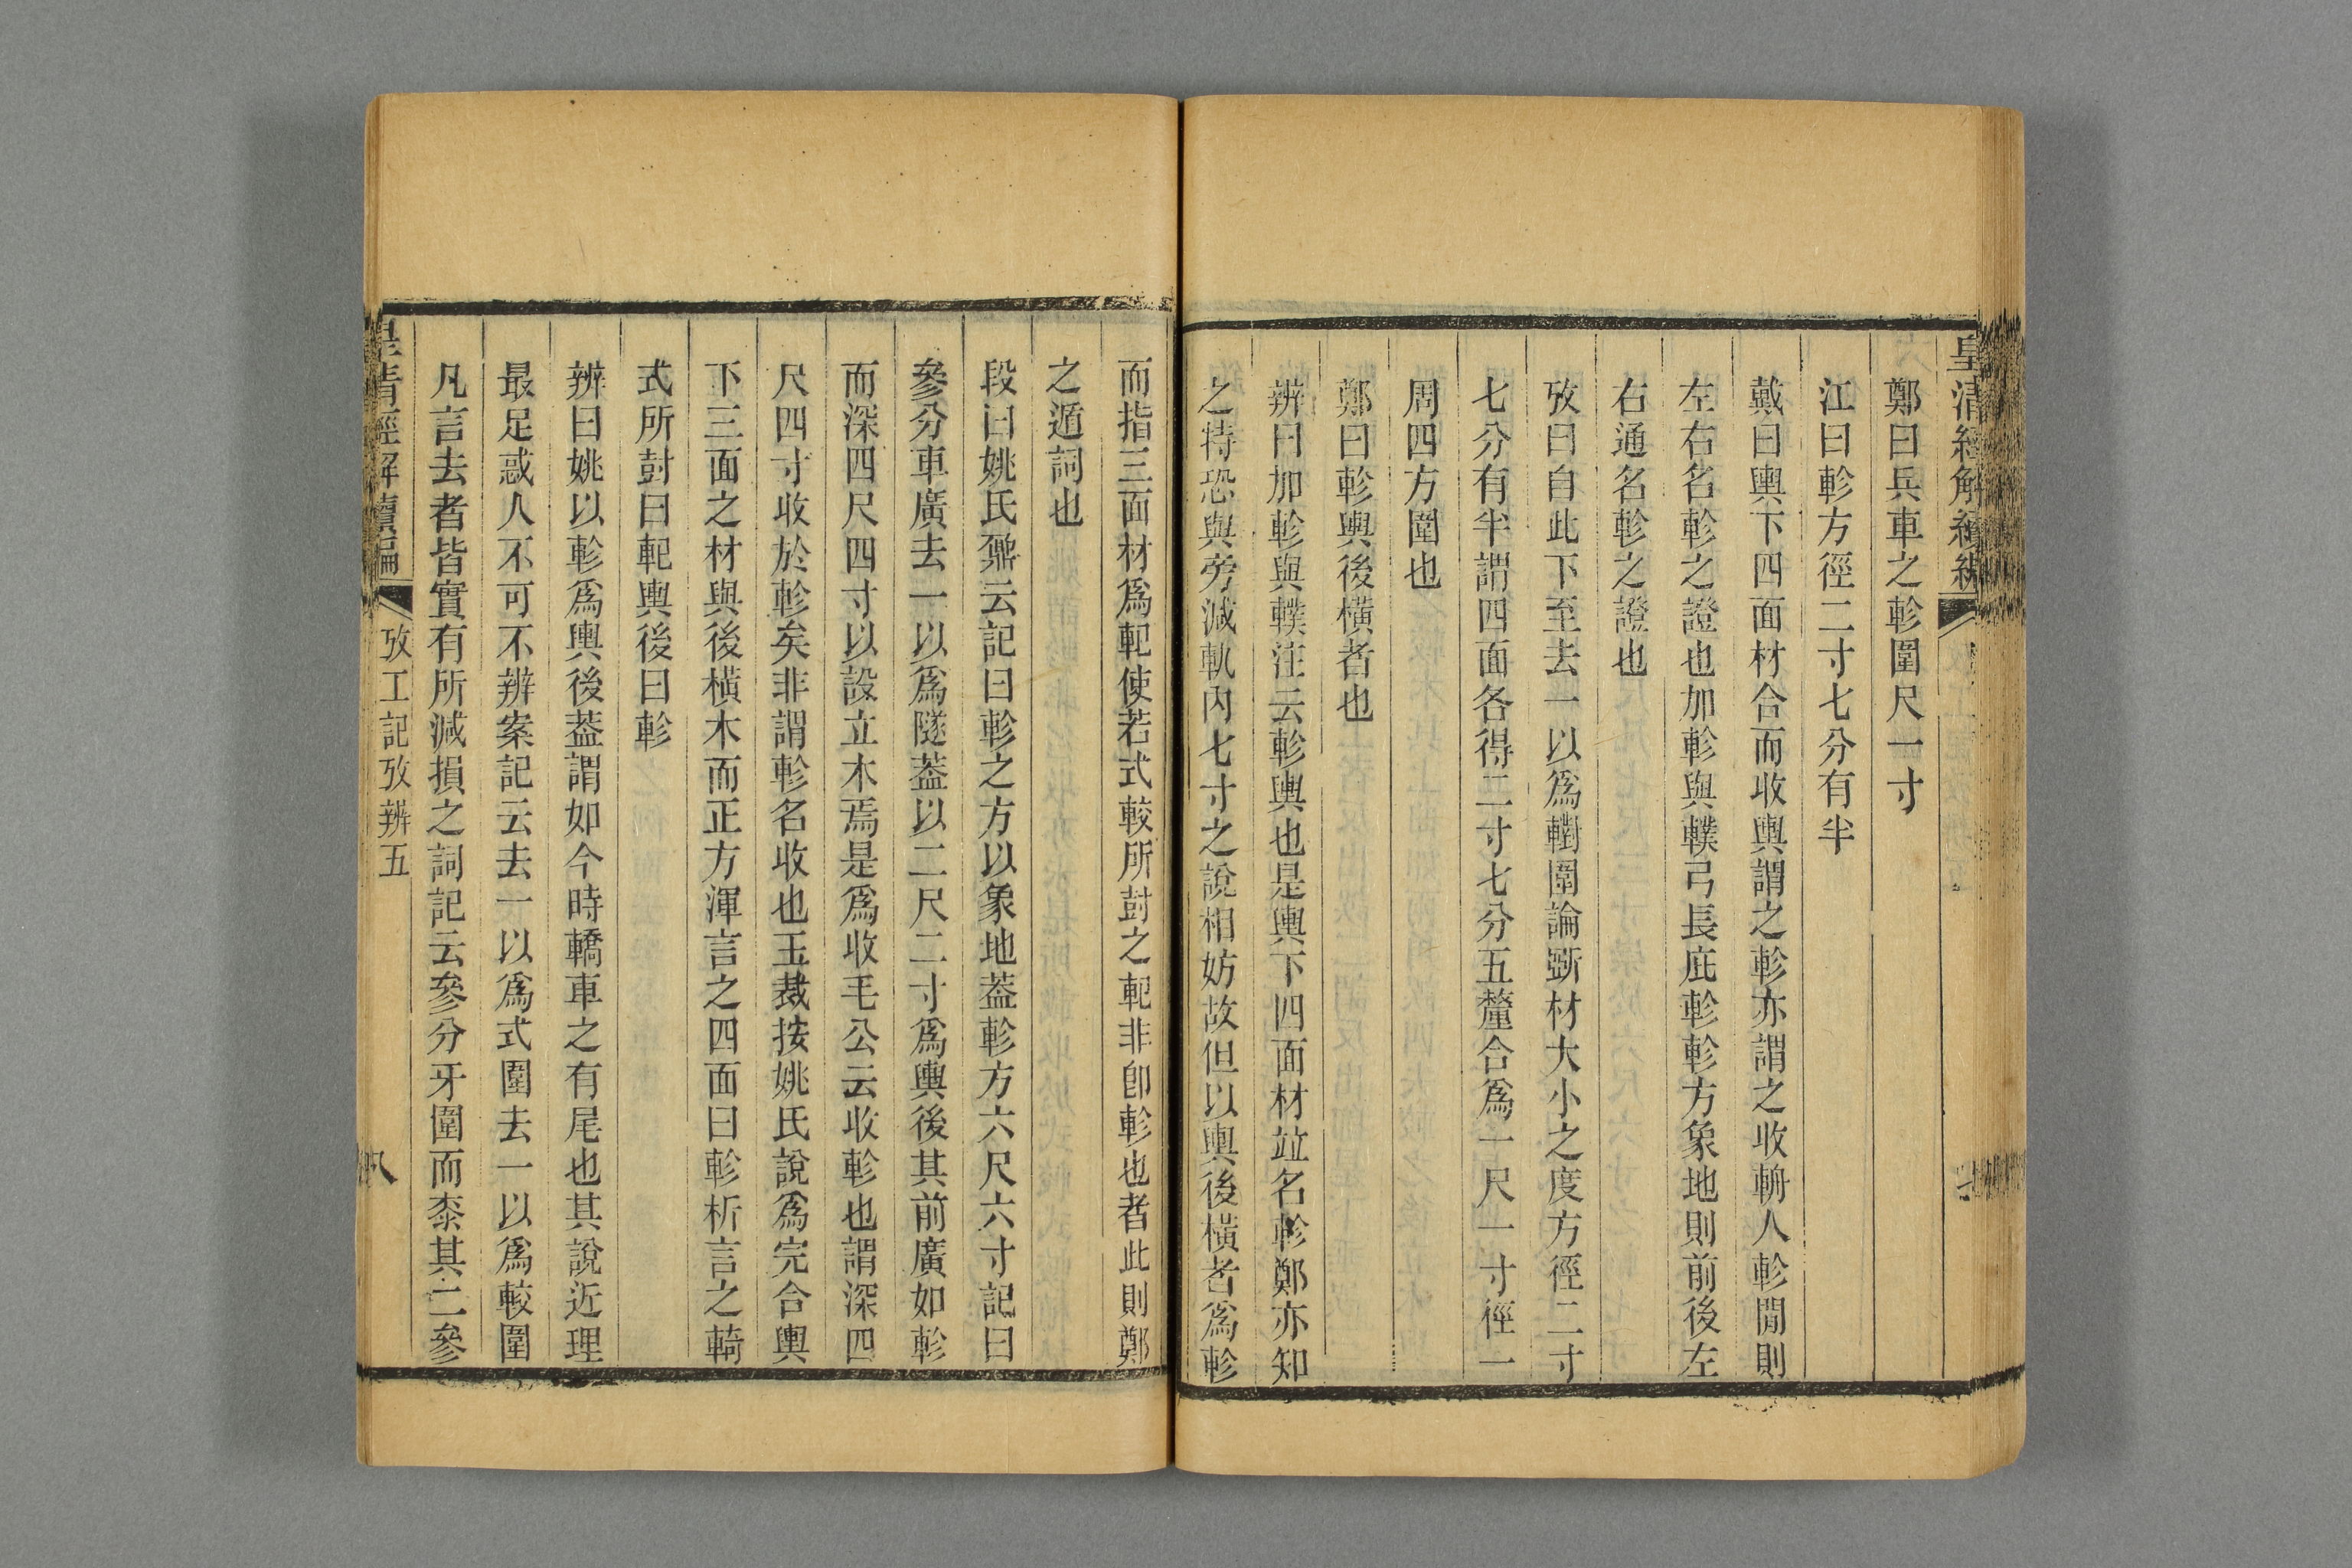 皇清經解續編
鄭曰兵車之軫圍尺一寸
江曰軫方徑二寸七分有半
戴曰輿下四面材合而收輿謂之軫亦謂之收輈人軫閒則
左右名軫之證也加軫與轐弓長庇軫軫方象地則前後左
右通名軫之證也
攷曰自此下至去一以爲轛圍論斲材大小之度方徑二寸
七分有半謂四面各得二寸七分五釐合爲一尺一寸徑一
周四方圍也
鄭曰軫輿後橫者也
辨曰加軫與轐注云軫輿也是輿下四面材竝名軫鄭亦知
之特恐與旁減軌內七寸之說相妨故但以輿後橫者爲軫
而指三面材爲軓使若式較所尌之軓非卽軫也者此則鄭
之遁詞也
段曰姚氏鼐云記曰軫之方以象地葢軫方六尺六寸記曰
參分車廣去一以爲隧葢以二尺二寸爲輿後其前廣如軫
而深四尺四寸以設立木焉是爲收毛公云收軫也謂深四
尺四寸收於軫矣非謂軫名收也玉裁按姚氏說爲完合輿
下三面之材與後橫木而正方渾言之四面曰軫析言之輢
式所尌曰軓輿後曰軫
辨曰姚以軫爲輿後葢謂如今時轎車之有尾也其說近理
最足惑人不可不辨案記云去一以爲式圍去一以爲較圍
凡言去者皆實有所減損之詞記云參分牙圍而桼其二參
皇清經解續編
攷工記攷辨五
八